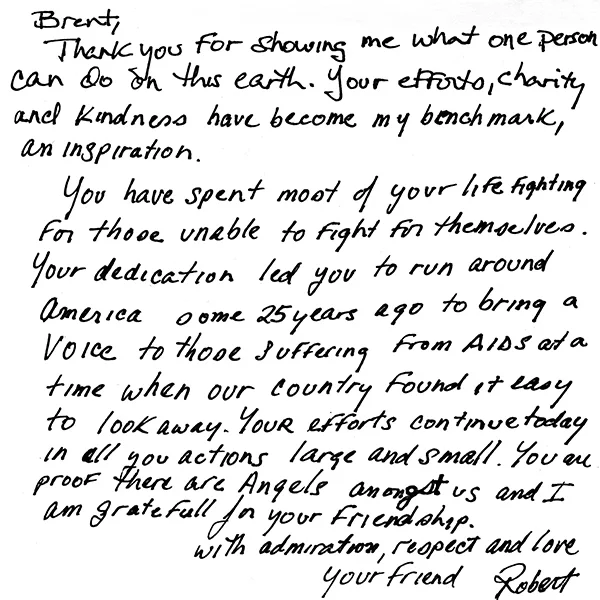 Brent,
Thank you for showing me what one person
can do on this earth. Your efforts, charity
and kindness have become my benchmark,
an inspiration.
You have spent most of your life fighting
for those unable to fight for themselves.
Your dedication led you to run around
America some 25 years ago to bring a
voice to those suffering from AIDS at a
time when our country found it easy
to look away. Your efforts continue today
in all you actions large and small. You are
proof there are Angels amongst us and I
am gratefull for your friendship.
with admiration, respect and love
your friend Robert